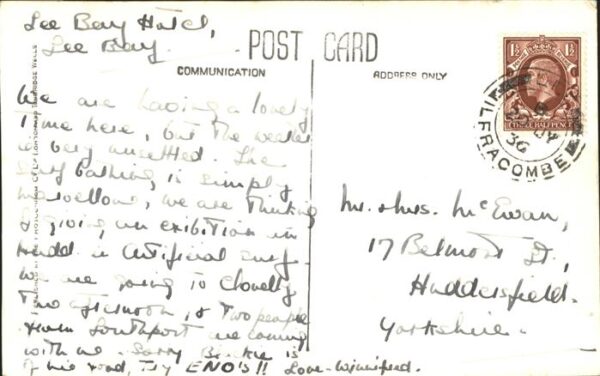 Lee Bay Hotel,
Lee Bay.
POST CARD
COMMUNICATION
ADDRESS ONLY
We are having a lovely
time here, but the weather
is very unsettled. The
surf bathing is simply
marvellous, we are thinking
of giving an exibition in
Hudd. in Artificial surf.
We are going to Clovelly
this afternoon, & two people
from Southport are coming
with us. Sorry Binkie is
off his food, try ENO'S!! Love - Winnifred.
Mr. & Mrs. McEwan,
17 Belmont St,
Huddersfield.
Yorkshire.
1½ 1½
THREE HALF PENCE
36
ILFRACOMBE